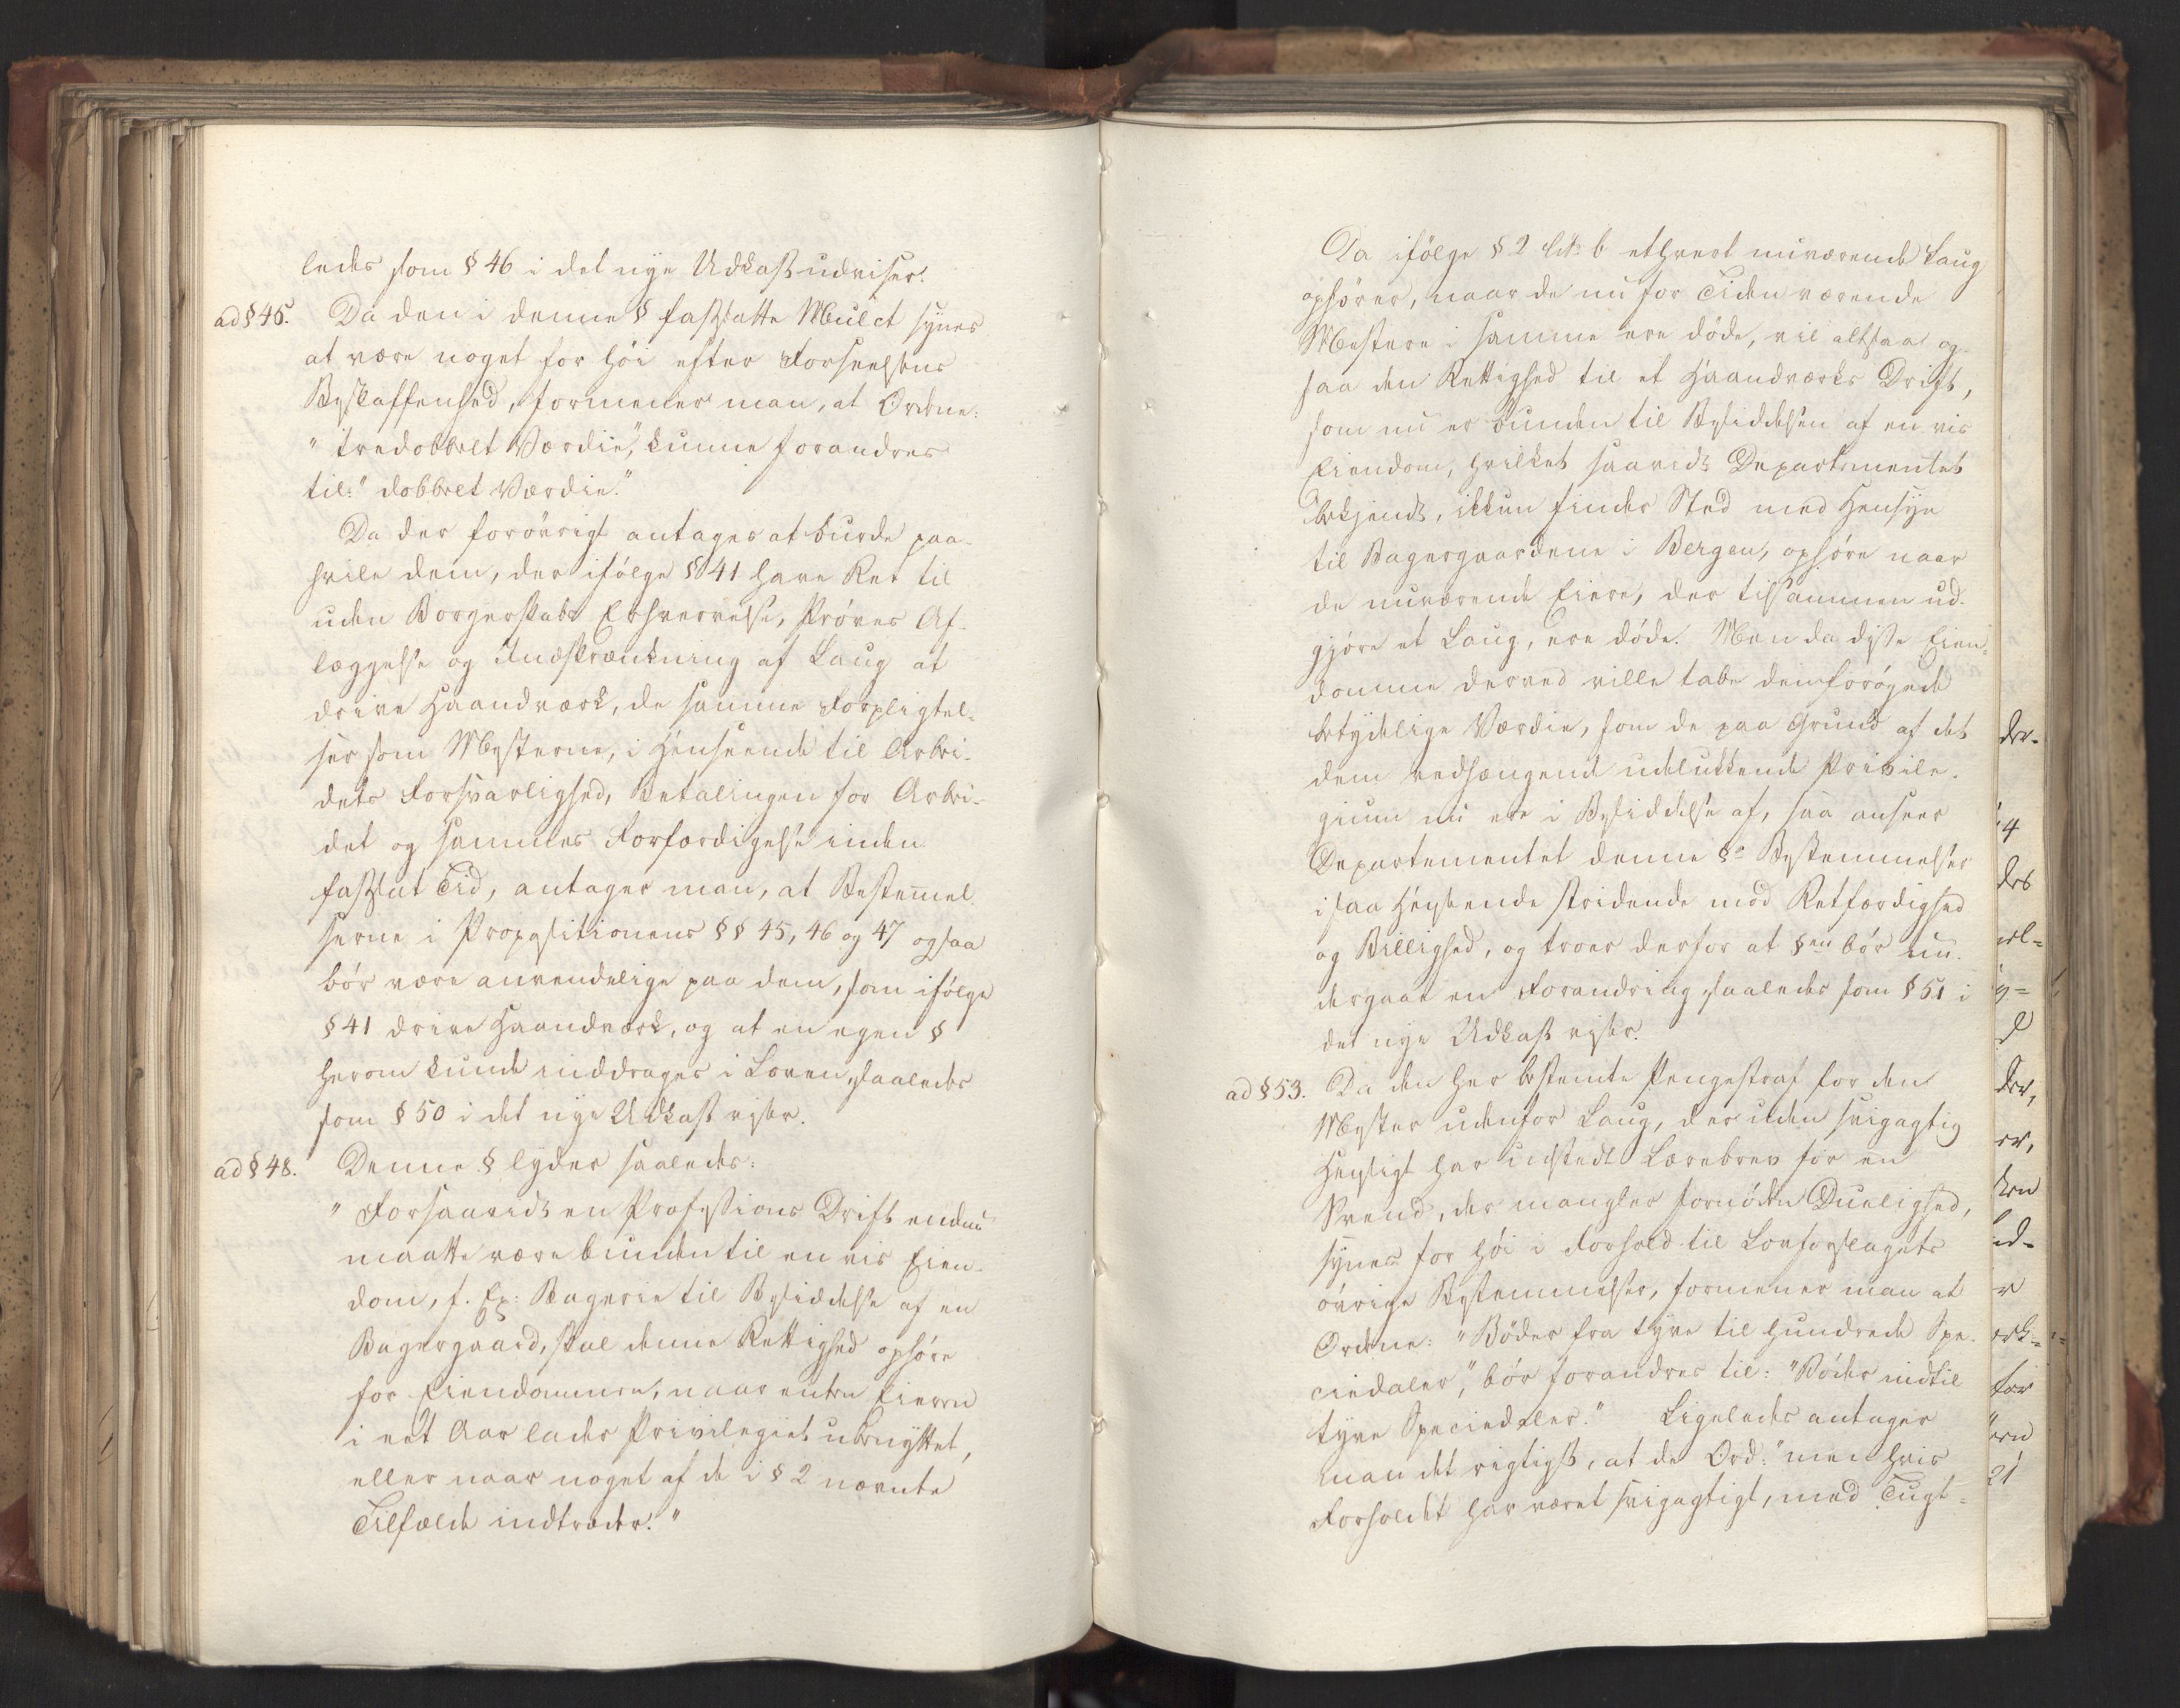 ledes som § 46 i det nye Udkast udviser.
ad § 45. Da den i denne § fastsatte Mulct synes
at være noget for höi efter Forseelsens
Beskaffenhed, formener man, at Ordene:
"tredobbelt Værdie", kunne forandres
til: "dobbelt Værdie."
Da der forövrigt antages at burde paa-
hvile dem, der ifölge § 41 have Ret til
uden Borgerskabs Erhvervelse, Pröves Af-
læggelse og Indskrænkning af Laug at
drive Haandværk, de samme Forpligtel-
ser som Mesterne, i Henseende til Arbei-
dets Forsvarlighed, Betalingen for Arbei-
det og sammes Forfærdigelse inden
fastsat Tid, antager man, at Bestemmel-
serne i Propositionens §§ 45, 46 og 47 ogsaa
bör være anvendelige paa dem, som ifölge
§ 41 drive Haandværk, og at en egen §
herom kunde inddrages i Loven, saaledes
som § 50 i det nye Udkast viser.
ad § 48. Denne § lyder saaledes:
"Forsaavidt en Professions Drift endnu
maatte være bunden til en vis Eien-
dom, f. Ex: Bagerie til Besiddelse af en
Bagergaard, skal denne Rettighed ophöre
for Eiendommen, naar enten Eieren
i eet Aar lader Privilegiet ubenyttet,
eller naar noget af de i § 2 nævnte
Tilfælde indtræder."
Da ifölge § 2 Litr. b ethvert nuværende Laug
ophörer, naar de nu for Tiden værende
Mestere i samme ere döde, vil altsaa og-
saa den Rettighed til et Haandværks Drift,
som nu er bunden til Besiddelsen af en vis
Eiendom, hvilket saavidt Departementet
bekjendt, ikkun finder Sted med Hensyn
til Bagergaardene i Bergen, ophöre naar
de nuværende Eiere, der tilsammen ud-
gjöre et Laug, ere döde. Men da disse Eien-
domme derved ville tabe den forögede
betydelige Værdie, som de paa Grund af det
dem vedhængende udelukkende Privile-
gium nu ere i Besiddelse af, saa anseer
Departementet denne §s Bestemmelser
i saa Henseende stridende mod Retfærdighed
og Billighed, og troer derfor at §en bör un-
dergaae en Forandring, saaledes som § 51 i
det nye Udkast viser.
ad § 53. Da den her bestemte Pengestraf for den
Mester udenfor Laug, der uden svigagtig
Hensigt har udstedt Lærebrev for en
Svend, der mangler fornöden Duelighed,
synes for höi i Forhold til Lovforslagets
övrige Bestemmelser, formener man at
Ordene: "Böder fra tyve til hundrede Spe-
ciedaler", bör forandres til: "Böder indtil
tyve Speciedaler." Ligeledes antager
man det rigtigst, at de Ord: "men hvis
Forholdet har været svigagtigt, med Tugt-